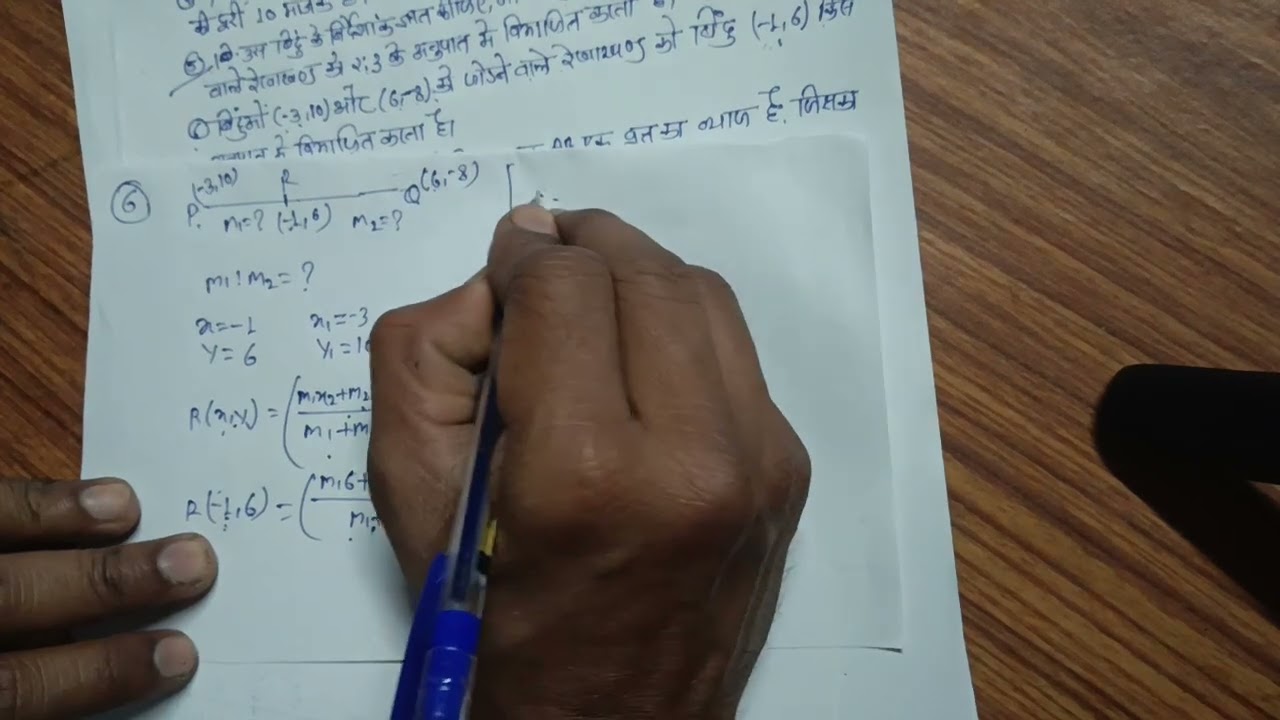 से दूरी 10 मात्रक
उस बिंदु के निर्देशांक ज्ञात कीजिए,
वाले रेखाखण्ड को 2:3 के अनुपात में विभाजित करता
⑥ बिंदुओं (-3,10) और (6,-8) को जोड़ने वाले रेखाखण्ड को बिंदु (-1,6) किस
में विभाजित करता है।
एक व्रत का व्यास है, जिसका
⑥ (-3,10) R Q(6,-8)
P. m₁=? (-1,6) m₂=?
m₁:m₂=?
x=-1 x₁=-3
y=6 y₁=10
R(x,y) = (m₁x₂+m₂
m₁+m
R(-1,6) = (m₁6+
m₁